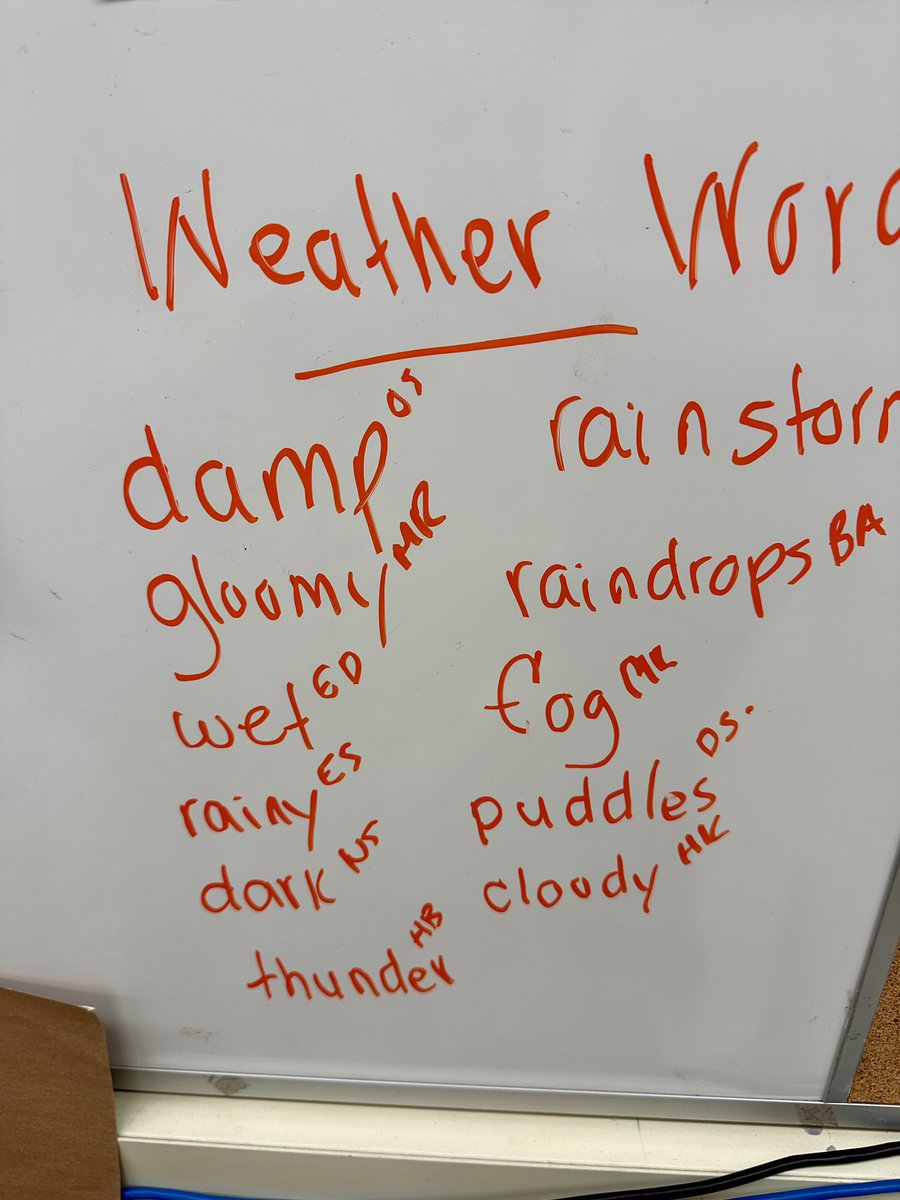 Weather Word
damp OS
gloomy MR
wet ED
rainy ES
dark NS
thunder HB
rainstorm
raindrops BA
fog MK
puddles DS.
cloudy HK